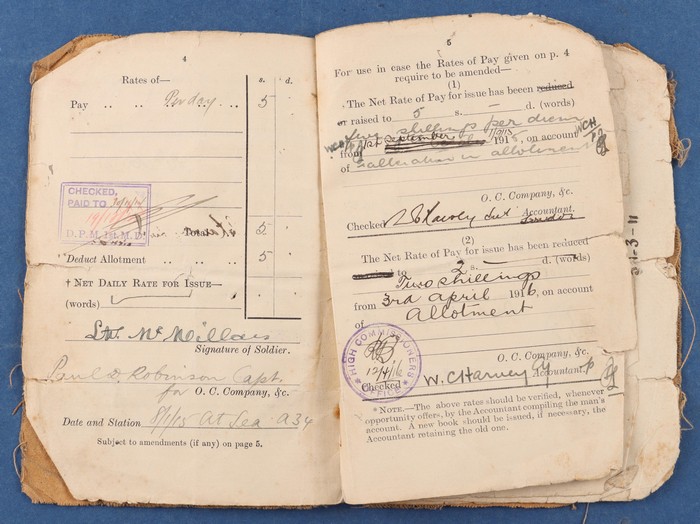 4
Rates of—
s. d.
Pay .. .. Per day .. 5
CHECKED,
PAID TO
D.P.M. 1st M.D.
Total 5
*Deduct Allotment .. .. 5
† NET DAILY RATE FOR ISSUE—
(words)
Signature of Soldier.
Paul D. Robinson Capt.
for O. C. Company, &c.
Date and Station 8/1/15 At Sea A34
Subject to amendments (if any) on page 5.
5
For use in case the Rates of Pay given on p. 4
require to be amended—
(1)
The Net Rate of Pay for issue has been reduced
or raised to 5 s. — d. (words)
five shillings per diem
from 1st September 1915, on account
of alteration in allotment
O. C. Company, &c.
Checked Accountant.
(2)
The Net Rate of Pay for issue has been reduced
to 2 s. — d. (words)
Two shillings
from 3rd April 1916, on account
of Allotment
O. C. Company, &c.
HIGH COMMISSIONERS OFFICE
12/4/16
Checked W. C Harvey Accountant.
* NOTE.—The above rates should be verified, whenever
opportunity offers, by the Accountant compiling the man's
account. A new book should be issued, if necessary, the
Accountant retaining the old one.